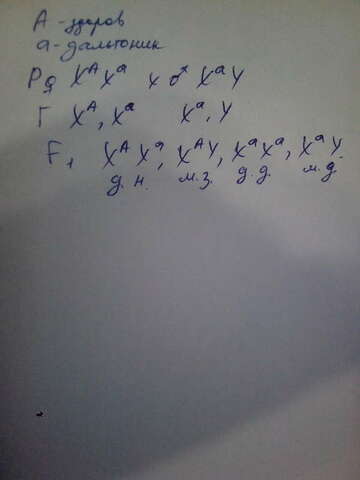 А - здоров
а - дальтоник
P ♀ Xᴬ Xᵃ x ♂ Xᵃ Y
Г Xᴬ, Xᵃ Xᵃ, Y
F₁ Xᴬ Xᵃ, Xᴬ Y, Xᵃ Xᵃ, Xᵃ Y.
д. н. м. з. д. д. м. д.